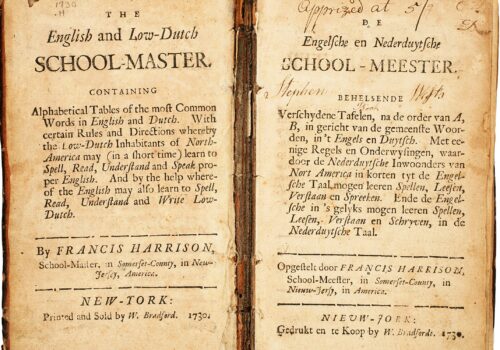 1730
THE
English and Low-Dutch
SCHOOL-MASTER.
CONTAINING
Alphabetical Tables of the most Common
Words in English and Dutch. With
certain Rules and Directions whereby
the Low-Dutch Inhabitants of North-
America may (in a short time) learn to
Spell, Read, Understand and Speak pro-
per English. And by the help where-
of the English may also learn to Spell,
Read, Understand and Write Low-
Dutch.
By FRANCIS HARRISON,
School-Master, in Somerset-County, in New-
Jersy, America.
NEW-YORK:
Printed and Sold by W. Bradford. 1730.
Apprized at 5/
DE
Engelsche en Nederduytsche
SCHOOL-MEESTER.
Stephen
BEHELSENDE
Verschydene Tafelen, na de order van A,
B, in gericht van de gemeenste Woor-
den, in't Engels en Duytsch. Met ee-
nige Regels en Onderwysingen, waar-
door de Nederduytsche Inwoonders van
Nort America in korten tyt de Engel-
sche Taal mogen leeren Spellen, Leesen,
Verstaan en Spreeken. Ende de Engel-
sche in 's gelyks mogen leeren Spellen,
Leesen, Verstaan en Schryven, in de
Nederduytsche Taal.
Opgestelt door FRANCIS HARRISON,
School-Meester, in Somerset-County, in
Nieuw-Jersy, in America.
NIEUW-JORK:
Gedrukt en te Koop by W. Bradfordt. 1730.